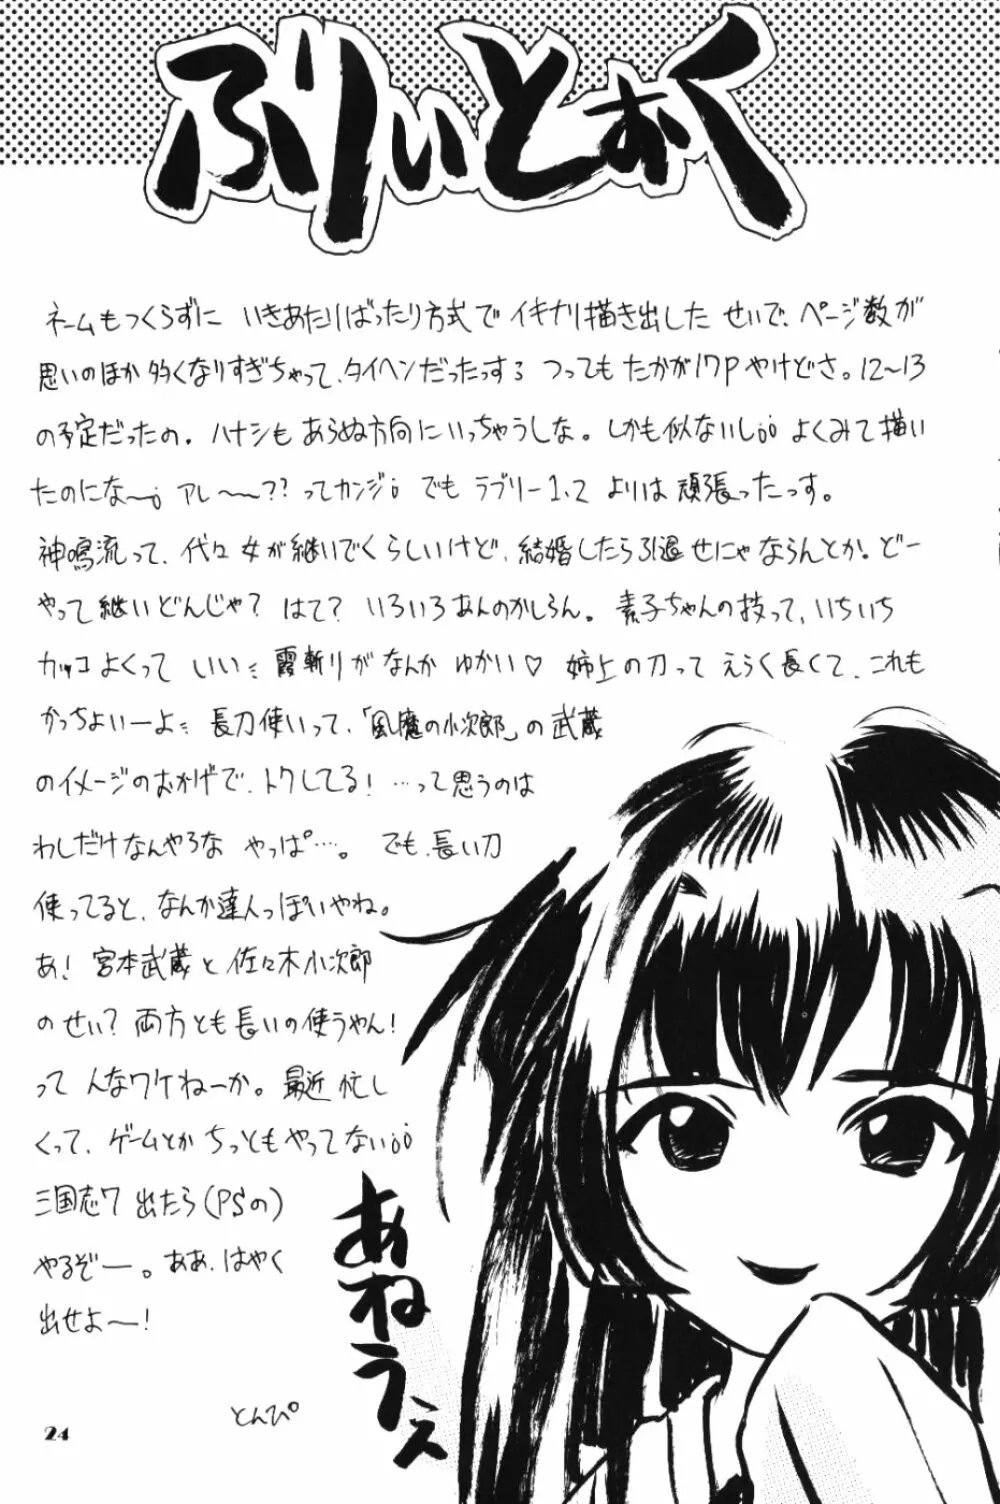 ふりぃとぉく
ネームもつくらずに いきあたりばったり方式で イキナリ描き出した せいで、ページ数が
思いのほか 多くなりすぎちゃって、タイヘンだったっする つっても たかが17P やけどさ。12〜13
の予定だったの。ハナシも あらぬ方向に いっちゃうしな。しかも似ないし¡¡ よくみて描い
たのにな〜¡ アレ〜〜?? ってカンジ¡ でも ラブリー1、2 よりは 頑張ったっす。
神鳴流って、代々女が継いでくらしいけど、結婚したら引退せにゃならんとか。どー
やって継いどんじゃ? はて? いろいろあんのかしらん。 素子ちゃんの技って、いちいち
カッコよくって いい〃 霞斬りがなんか ゆかい♡ 姉上の刀って えらく長くて、これも
かっちょいーよ〃 長刀使いって、「風魔の小次郎」の武蔵
のイメージのおかげで、トクしてる! …って思うのは
わしだけなんやろな やっぱ…。 でも、長い刀
使ってると、なんか達人っぽいやね。
あ! 宮本武蔵と佐々木小次郎
のせい? 両方とも長いの使うやん!
って んなワケねーか。最近 忙し
くって、ゲームとか ちっともやってない¡¡
三国志7 出たら(PSの)
やるぞー。ああ、はやく
出せよ〜!
あねうえ
とんぴ
24